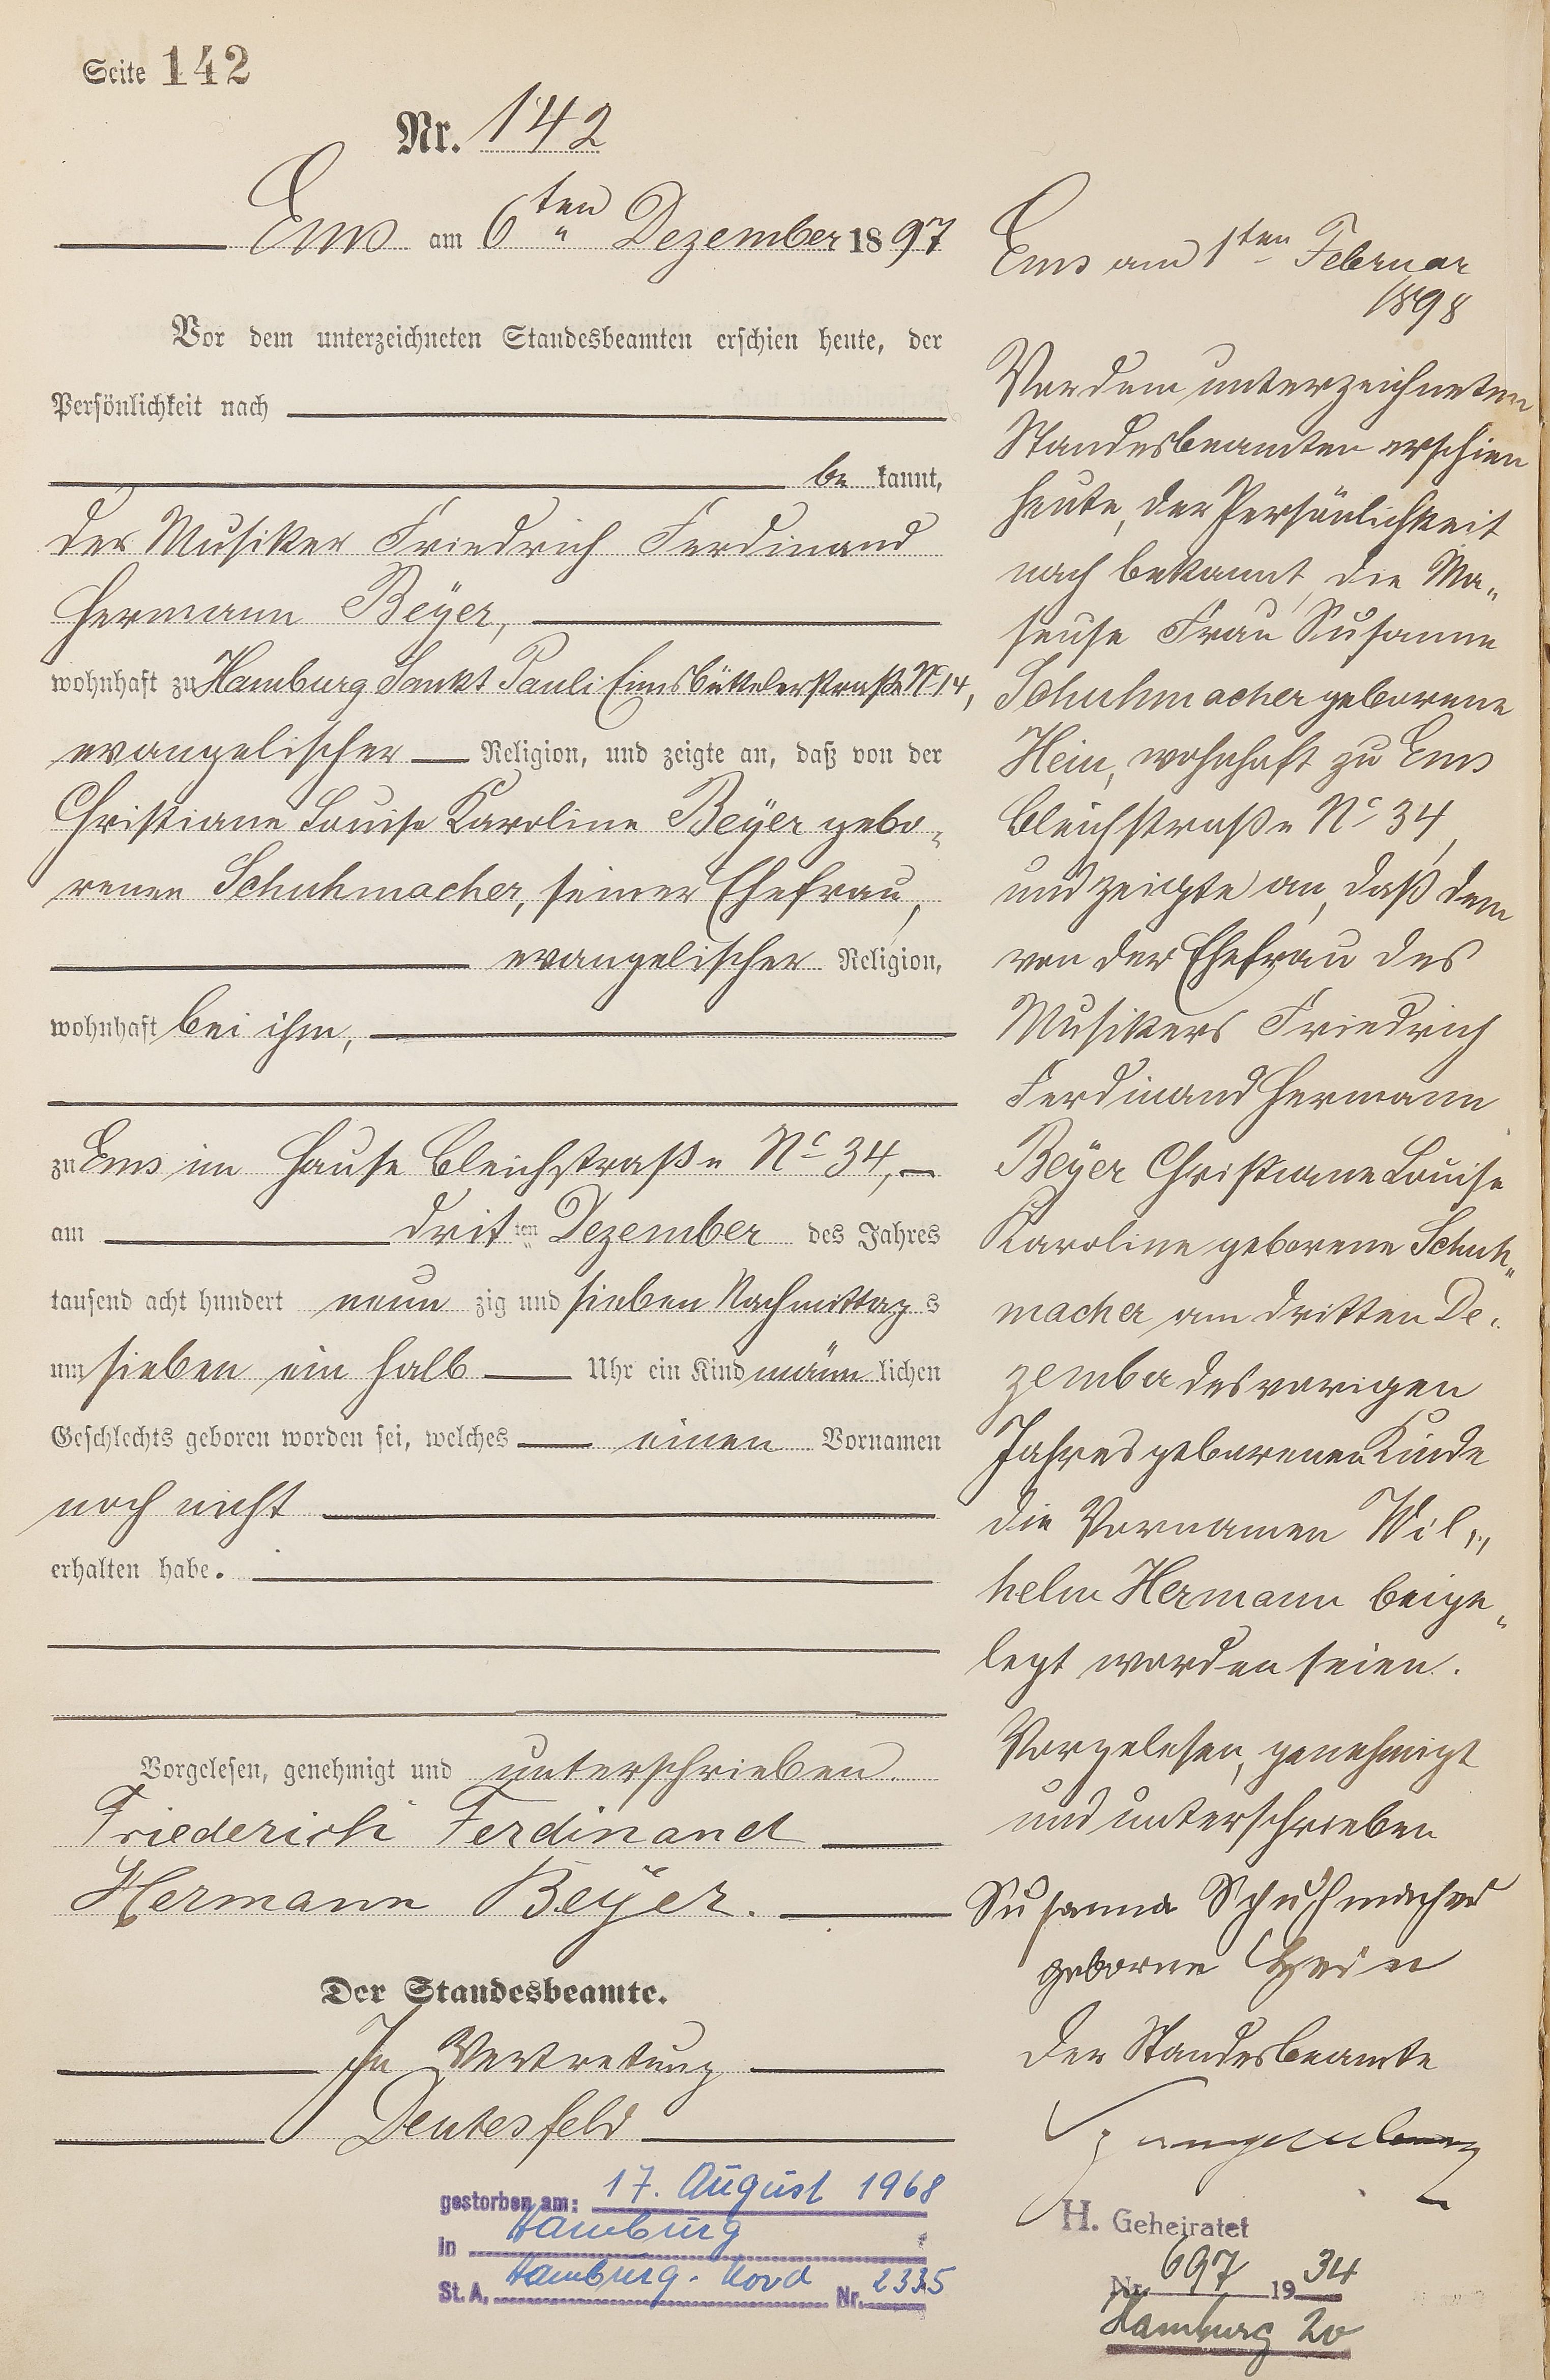 Seite 142
Nr. 142
Ems am 6ten Dezember 1897
Vor dem unterzeichneten Standesbeamten erschien heute, der
Persönlichkeit nach
be kannt,
der Musiker Friedrich Ferdinand
Hermann Beÿer,
wohnhaft zu Hamburg Sankt Pauli Eimsbüttelerstraße No 14,
evangelischer Religion, und zeigte an, daß von der
Christiane Louise Karoline Beÿer gebo„
renen Schuhmacher, seiner Ehefrau,
evangelischer Religion,
wohnhaft bei ihm,
zu Ems im Hause Bleichstraße No 34,
am dritten Dezember des Jahres
tausend acht hundert neun zig und sieben Nachmittag s
um sieben ein halb Uhr ein Kind männ lichen
Geschlechts geboren worden sei, welches einen Vornamen
noch nicht
erhalten habe.
Vorgelesen, genehmigt und unterschrieben.
Friederich Ferdinand
Hermann Beÿer.
Der Standesbeamte.
In Vertretung
gestorben am: 17. August 1968
in Hamburg
St. A. Hamburg-Nord Nr. 2335
Ems am 1ten Februar
1898
Vor dem unterzeichneten
Standesbeamten erschien
heute, der Persönlichkeit
nach bekannt, die Ma„
seuse Frau Susanne
Schuhmacher geborene
Hein, wohnhaft zu Ems
Bleichstraße No 34,
und zeigte an, daß dem
von der Ehefrau des
Musikers Friedrich
Ferdinand Hermann
Beÿer Christiane Louise
Karoline geborene Schuh„
macher am dritten De„
zember des vorigen
Jahres geborenen Kinde
die Vornamen Wil„
helm Hermann beige„
legt worden seien.
Vorgelesen, genehmigt
und unterschrieben
Susanna Schuhmacher
geborne Hein
Der Standesbeamte
H. Geheiratet
Nr. 697 1934
Hamburg 20